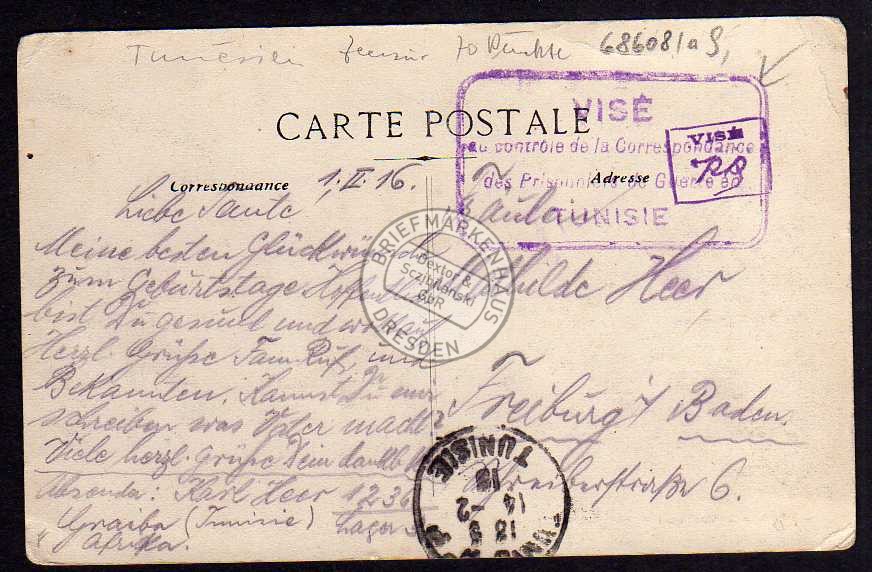 Tunesien Zensur 70 Punkte 686081a
CARTE POSTALE
VISÉ
au contrôle de la Correspondance
des Prisonniers de Guerre en
TUNISIE
VISÉ
Correspondance
Adresse
1.II.16.
Liebe Tante!
Meine besten Glückwünsch
zum Geburtstage. Hoffentl
bist Du gesund und wohlauf
Herzl. Grüße Fam. Ruf, und
Bekannten. Kannst Du mir
schreiben was Vater macht?
Viele herzl. Grüße Dein dankb.
Absender: Karl Heer 1236
Graiba (Tunisie) Lager
Afrika.
Fräulein
Mathilde Heer
Freiburg i/ Baden.
Schreiberstraße 6.
TUNISIE
18
14 -2
BRIEFMARKENHAUS
Dextor &
Sczibilanski
GbR
DRESDEN